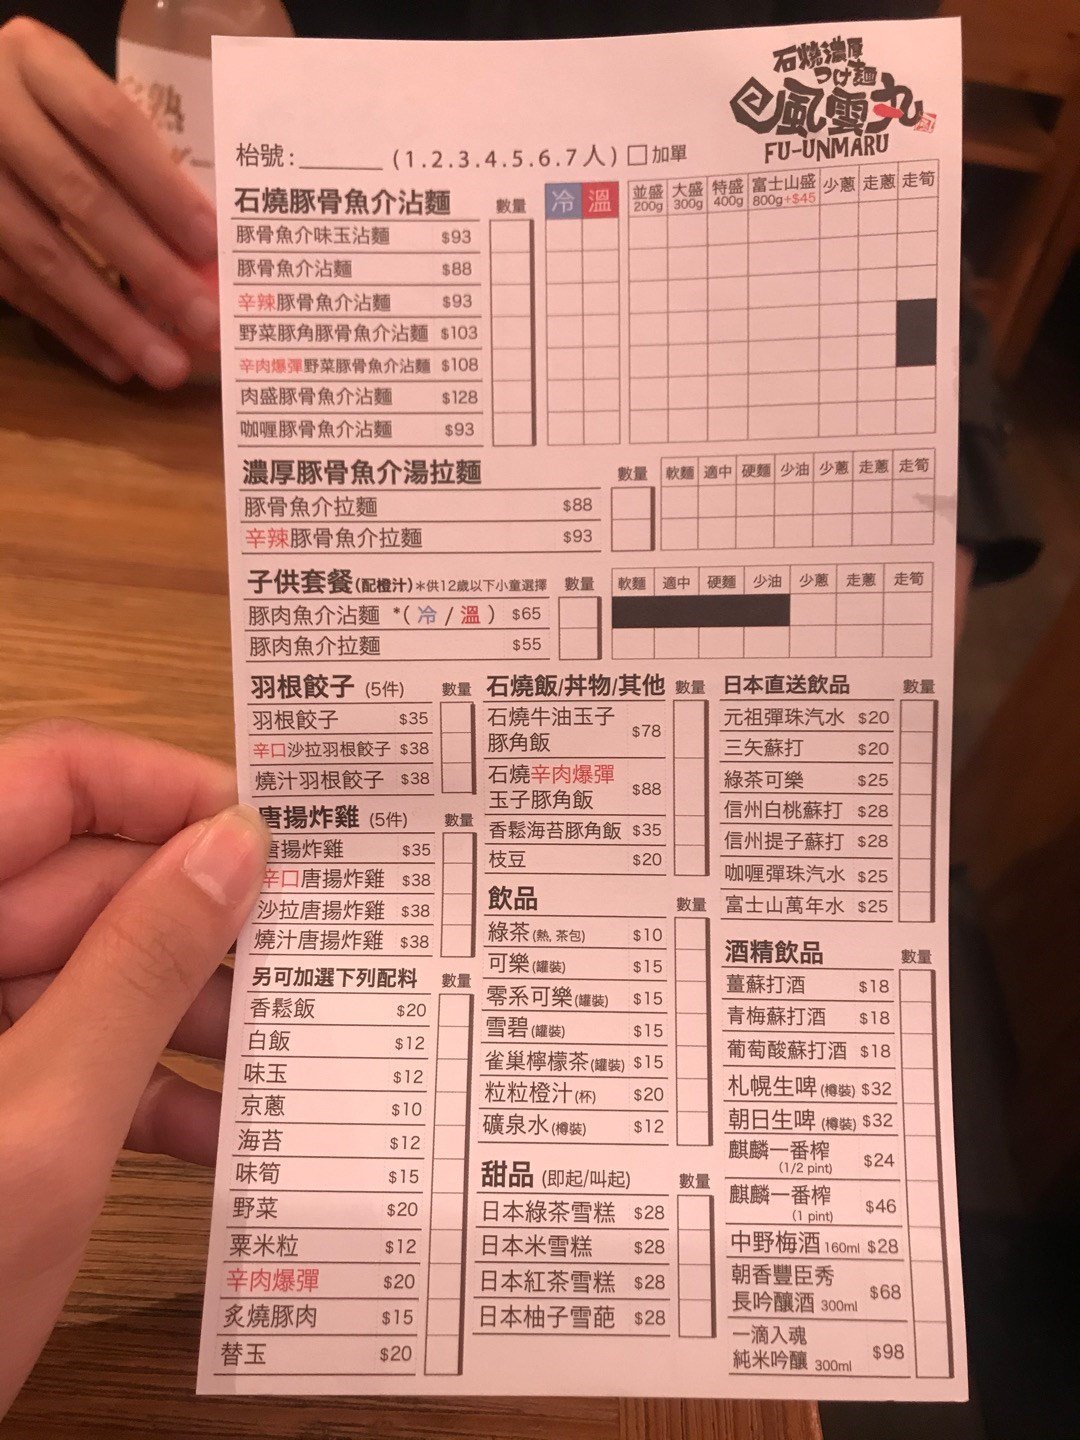 石燒濃厚
つけ麺
風雲丸
FU-UNMARU
枱號:______ (1.2.3.4.5.6.7人) □加單
石燒豚骨魚介沾麵 數量 冷 溫 並盛 200g 大盛 300g 特盛 400g 富士山盛 800g+$45 少蔥 走蔥 走筍
豚骨魚介味玉沾麵 $93
豚骨魚介沾麵 $88
辛辣豚骨魚介沾麵 $93
野菜豚角豚骨魚介沾麵 $103
辛肉爆彈野菜豚骨魚介沾麵 $108
肉盛豚骨魚介沾麵 $128
咖喱豚骨魚介沾麵 $93
濃厚豚骨魚介湯拉麵 數量 軟麵 適中 硬麵 少油 少蔥 走蔥 走筍
豚骨魚介拉麵 $88
辛辣豚骨魚介拉麵 $93
子供套餐(配橙汁)*供12歲以下小童選擇 數量 軟麵 適中 硬麵 少油 少蔥 走蔥 走筍
豚肉魚介沾麵 *(冷/溫) $65
豚肉魚介拉麵 $55
羽根餃子 (5件) 數量
羽根餃子 $35
辛口沙拉羽根餃子 $38
燒汁羽根餃子 $38
唐揚炸雞 (5件) 數量
唐揚炸雞 $35
辛口唐揚炸雞 $38
沙拉唐揚炸雞 $38
燒汁唐揚炸雞 $38
另可加選下列配料 數量
香鬆飯 $20
白飯 $12
味玉 $12
京蔥 $10
海苔 $12
味筍 $15
野菜 $20
粟米粒 $12
辛肉爆彈 $20
炙燒豚肉 $15
替玉 $20
石燒飯/丼物/其他 數量
石燒牛油玉子
豚角飯 $78
石燒辛肉爆彈
玉子豚角飯 $88
香鬆海苔豚角飯 $35
枝豆 $20
飲品 數量
綠茶(熱, 茶包) $10
可樂(罐裝) $15
零系可樂(罐裝) $15
雪碧(罐裝) $15
雀巢檸檬茶(罐裝) $15
粒粒橙汁(杯) $20
礦泉水(樽裝) $12
甜品 (即起/叫起) 數量
日本綠茶雪糕 $28
日本米雪糕 $28
日本紅茶雪糕 $28
日本柚子雪葩 $28
日本直送飲品 數量
元祖彈珠汽水 $20
三矢蘇打 $20
綠茶可樂 $25
信州白桃蘇打 $28
信州提子蘇打 $28
咖喱彈珠汽水 $25
富士山萬年水 $25
酒精飲品 數量
薑蘇打酒 $18
青梅蘇打酒 $18
葡萄酸蘇打酒 $18
札幌生啤(樽裝) $32
朝日生啤(樽裝) $32
麒麟一番榨
(1/2 pint) $24
麒麟一番榨
(1 pint) $46
中野梅酒 160ml $28
朝香豐臣秀
長吟釀酒 300ml $68
一滴入魂
純米吟釀 300ml $98